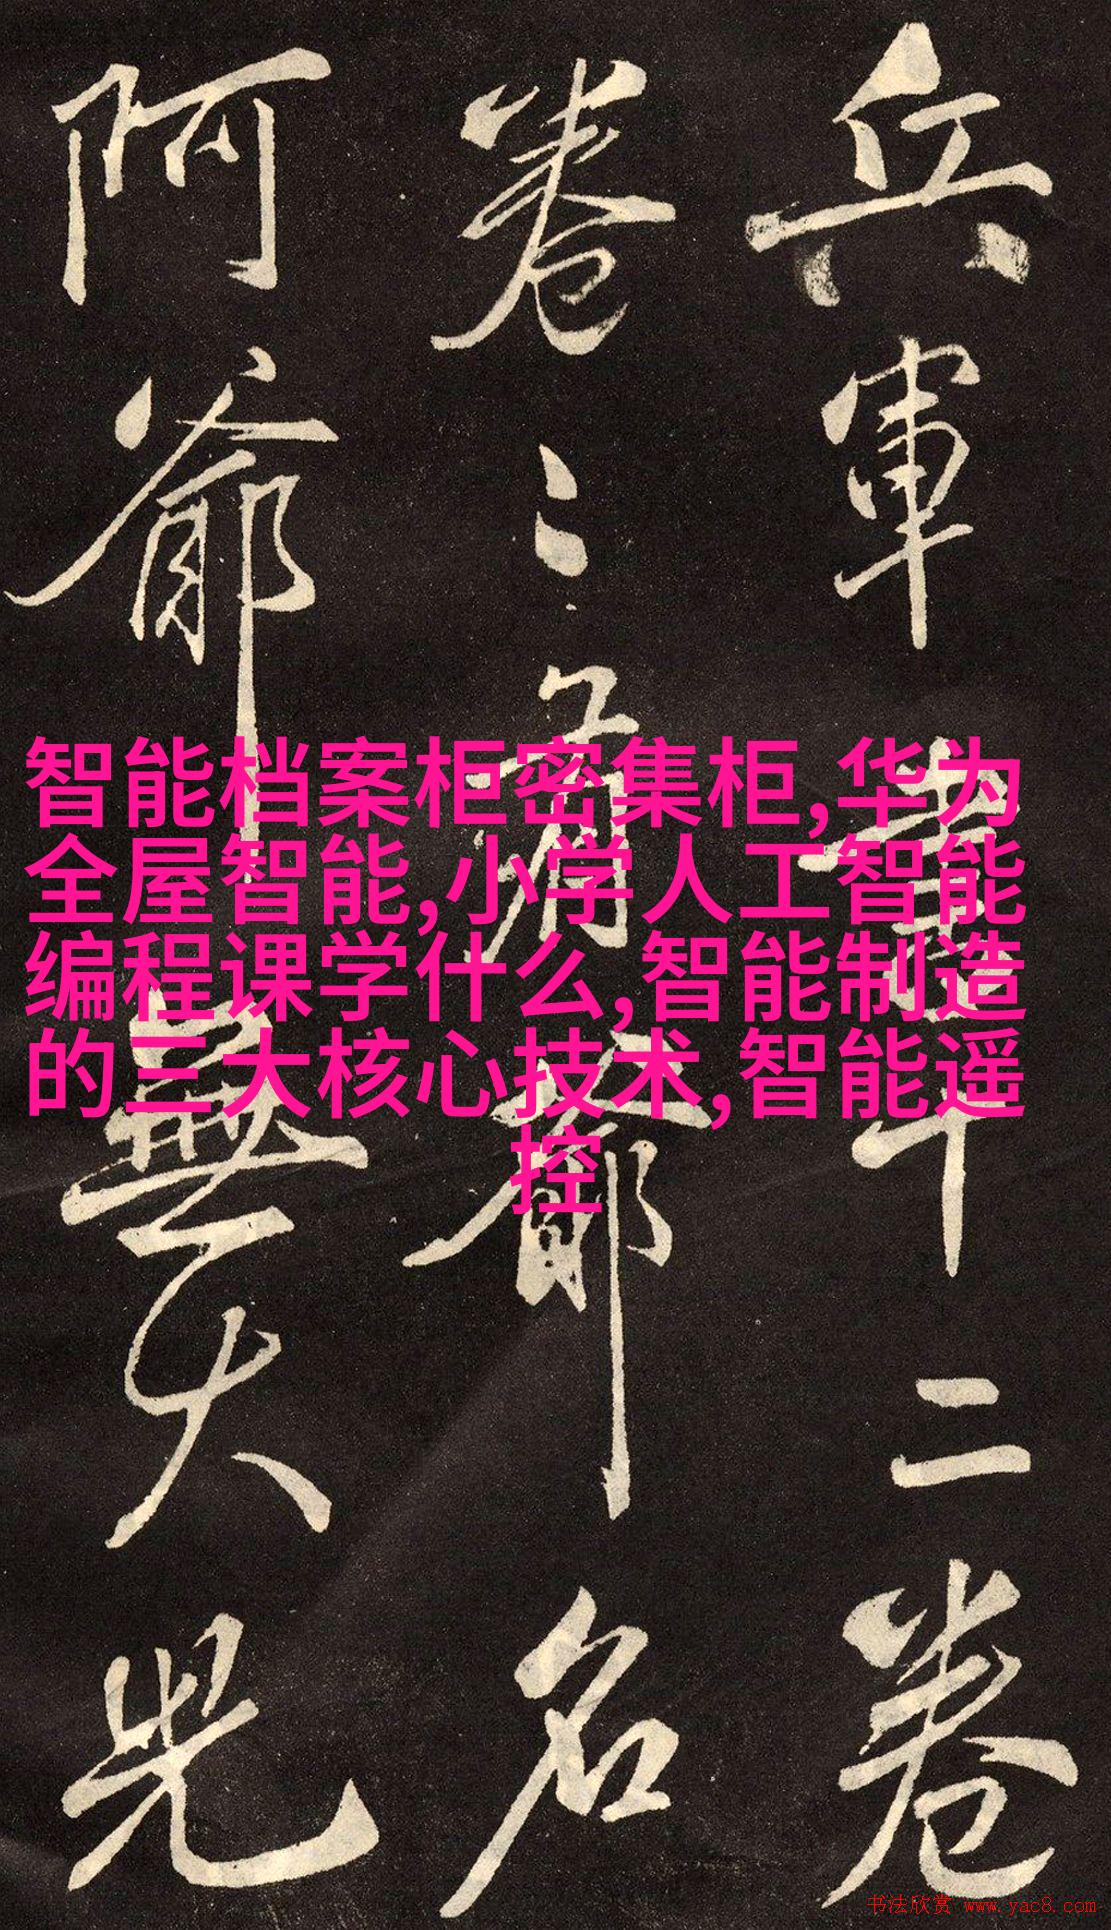 兵軍書十二卷
卷〻有爺名
阿爺無大兒
智能档案柜密集柜,华为
全屋智能,小学人工智能
编程课学什么,智能制造
的三大核心技术,智能遥
控
书法欣赏 www.yac8.com